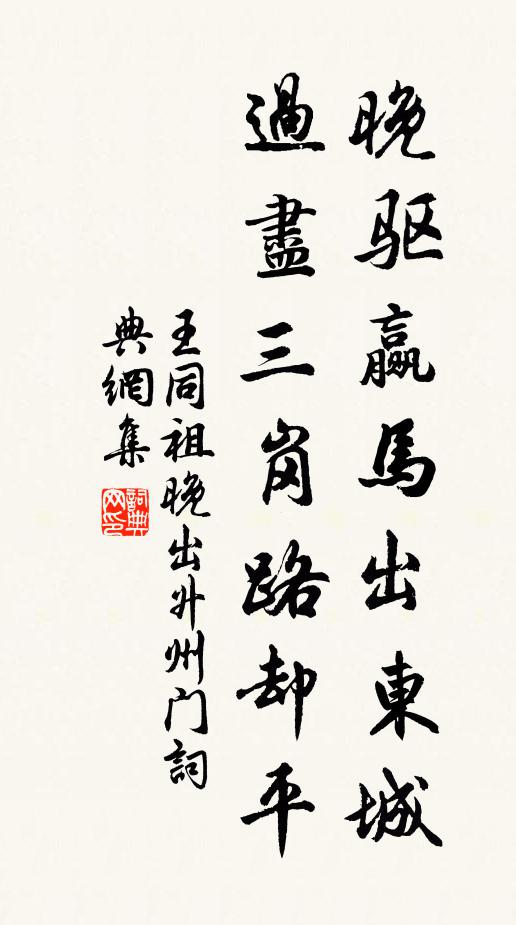 晚驱羸馬出東城
過盡三岗路却平
王同祖晚出升州门詞
典網集
詞典网印